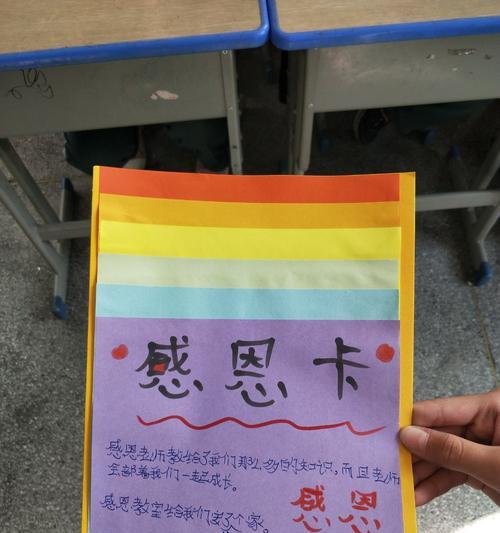 感恩卡
感恩老师教给了我们那么多的知识,而且老师
全部着我们一起成长。
感恩教室给我们当了个家。
感恩